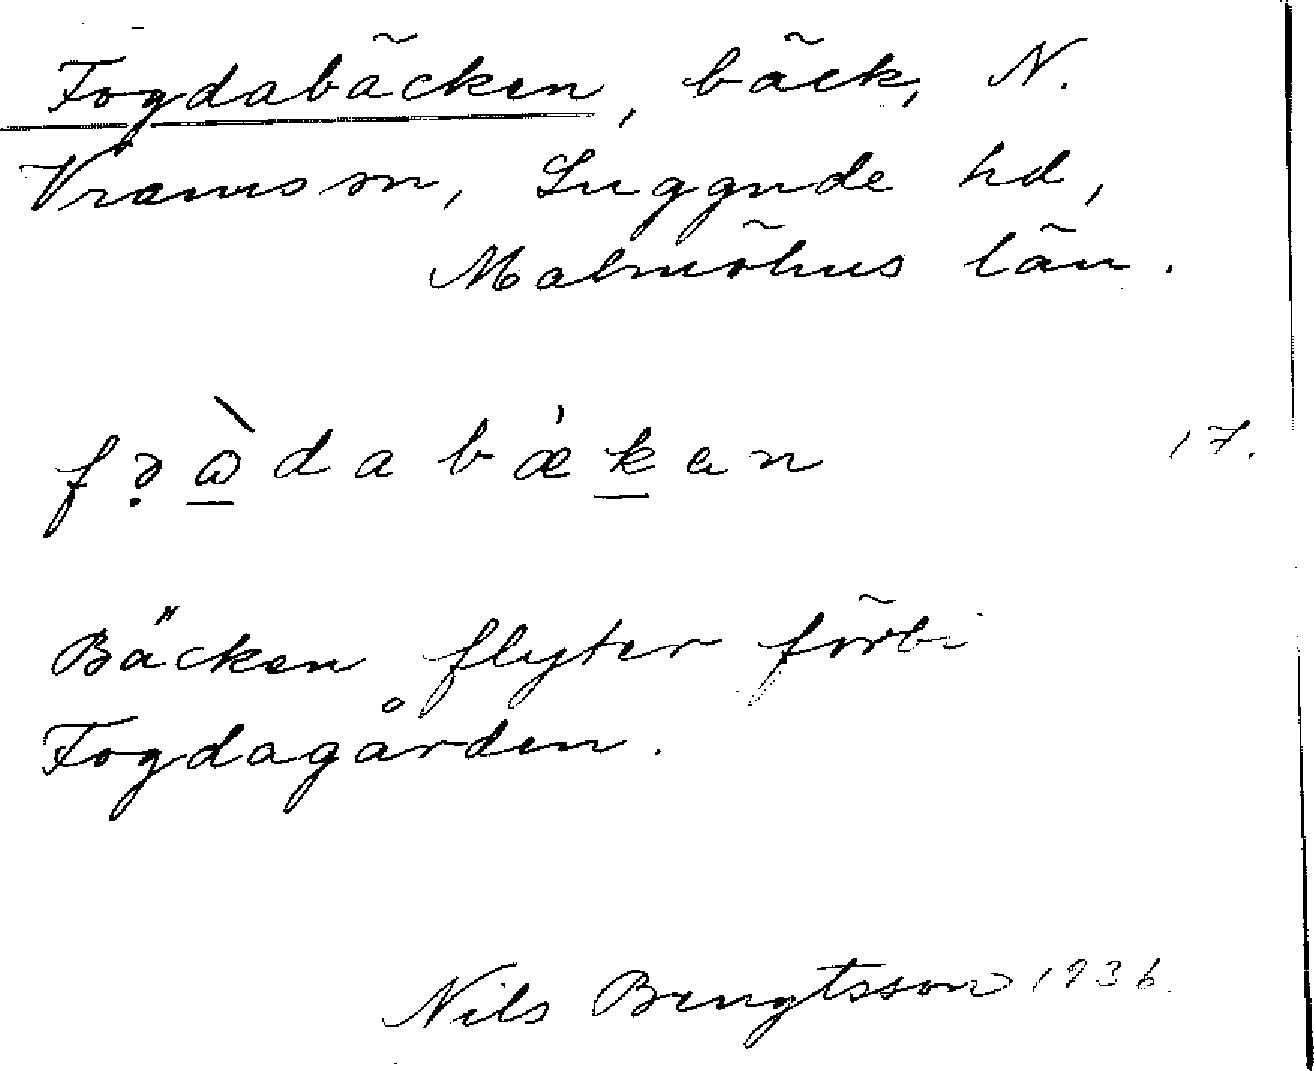 Fogdabäcken, bäck, N.
Vrams sn, Luggude hd,
Malmöhus län.
fə̣ꞷ̀dabækan 17.
Bäcken flyter förbi
Fogdagården.
Nils Bengtsson 1936.